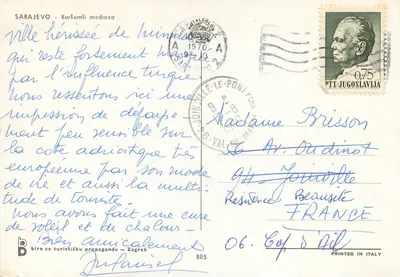 SARAJEVO - Kuršumli medresa
Ville hérissée de minarets
qui reste fortement marquée
par l'influence turque
Nous ressentons ici une
impression de dépayse-
ment peu sensible sur
la côte adriatique très
européenne par son mode
de vie et aussi la multi-
tude de touristes.
Nous avons fait une cure
de soleil et de chaleur-
Bien amicalement
biro za turističku propagandu - Zagreb
805
A
1970
A
2
0,75
PTT-JUGOSLAVIJA
JOINVILLE-LE-PONT
VAL DE MARNE
Madame Brisson
Av. Oudinot
94 Joinville
Résidence Beausite
FRANCE
06. Cap d'Ail
PRINTED IN ITALY